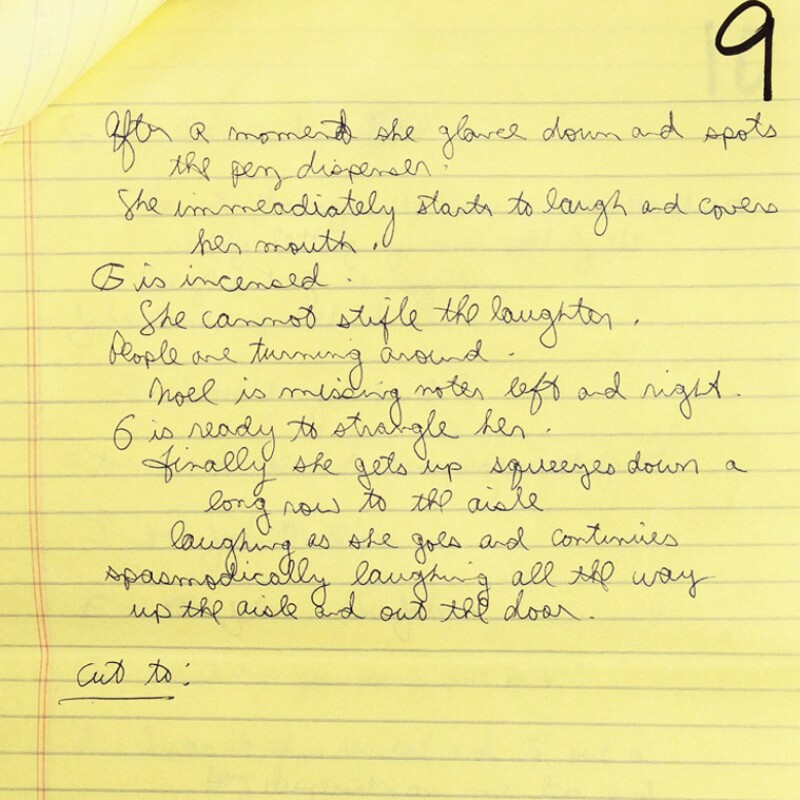 9
After a moment she glance down and spots
the pez dispenser.
She immeadiately starts to laugh and covers
her mouth.
G is incensed.
She cannot stifle the laughter.
People are turning around.
Noel is missing notes left and right.
G is ready to strangle her.
Finally she gets up squeezes down a
long row to the aisle
laughing as she goes and continues
spasmodically laughing all the way
up the aisle and out the door.
cut to: